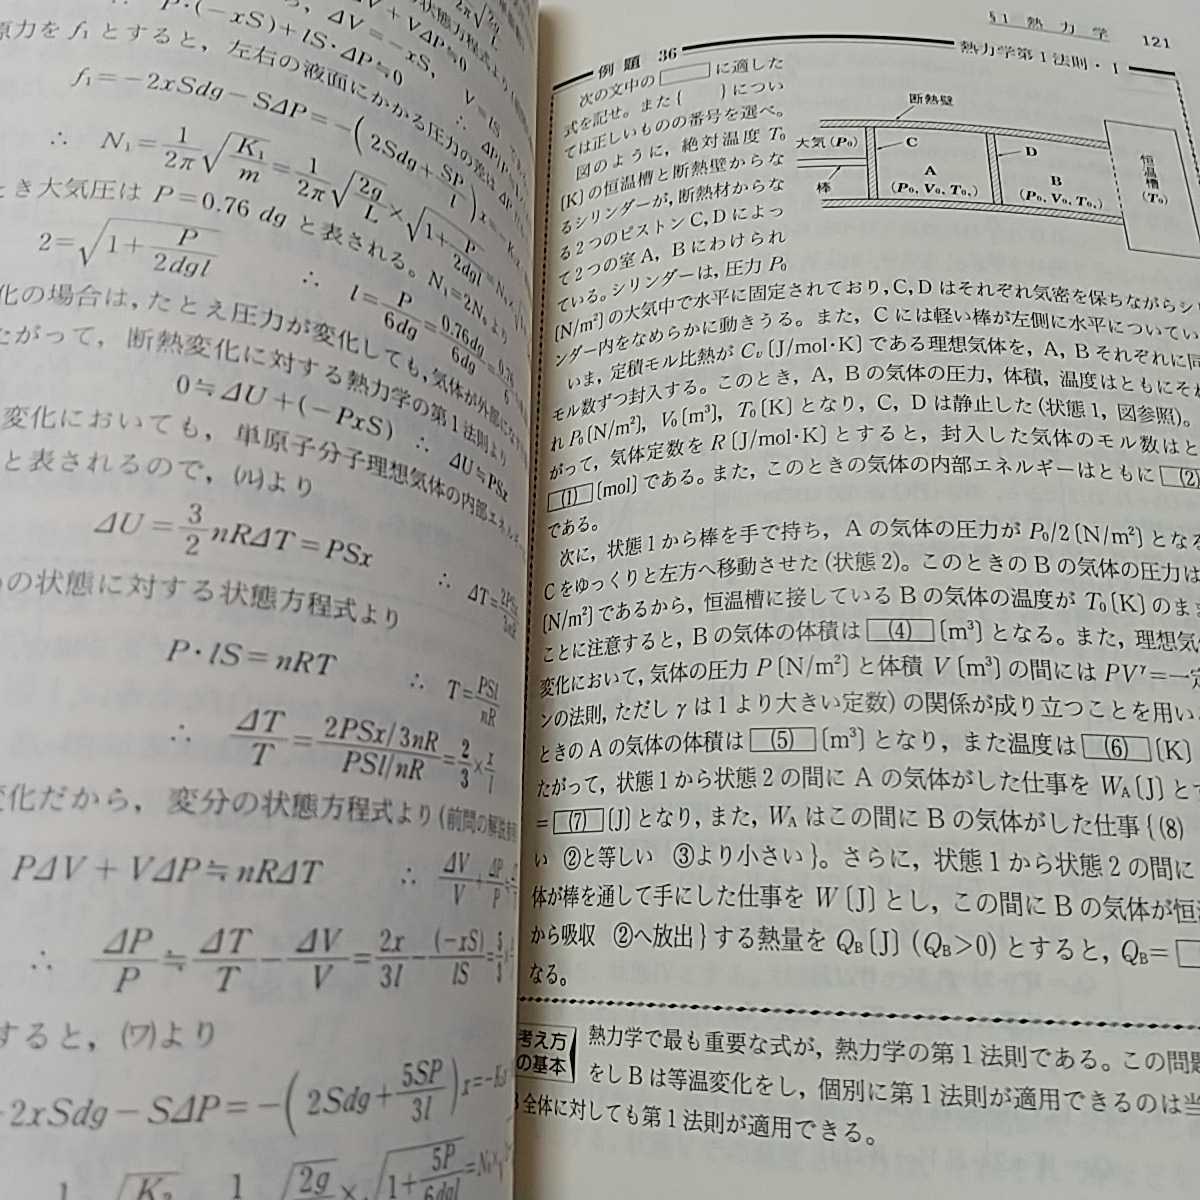 P・(−xS)+lS・ΔP≒0
原力を f₁ とすると，左右の液面にかかる圧力の差は
f₁=−2xSdg−SΔP=−(2Sdg+SP/l)x=−K₁
∴ N₁=1/2π√K₁/m=1/2π√2g/L×√1+P/2dgl=N₀×
とき大気圧は P=0.76 dg と表される。N₁=2N₀ より
2=√1+P/2dgl ∴ l=P/6dg=0.76dg/6dg=0.76/6
化の場合は，たとえ圧力が変化しても，気体が外部に
たがって，断熱変化に対する熱力学の第1法則より
0≒ΔU+(−PxS) ∴ ΔU≒PSx
変化においても，単原子分子理想気体の内部エネルギー
と表されるので，(ル)より
ΔU=3/2nRΔT=PSx
の状態に対する状態方程式より
P・lS=nRT ∴ T=PSl/nR
∴ ΔT/T=2PSx/3nR/PSl/nR=2/3×x/l
変化だから，変分の状態方程式より(前問の解説
PΔV+VΔP≒nRΔT ∴ ΔV/V+ΔP/P≒
∴ ΔP/P≒ΔT/T−ΔV/V=2x/3l−(−xS)/lS=5/3
すると，(ワ)より
−2xSdg−SΔP=−(2Sdg+5SP/3l)x=−K
§1 熱力学 121
例題 36 熱力学第1法則・1
次の文中の□に適した
式を記せ。また{ }につい
ては正しいものの番号を選べ。
図のように，絶対温度 T₀
〔K〕の恒温槽と断熱壁からな
るシリンダーが，断熱材からな
る2つのピストン C, D によっ
て2つの室 A，B にわけられ
ている。シリンダーは，圧力 P₀
断熱壁
大気(P₀)
C
D
A
(P₀, V₀, T₀,)
B
(P₀, V₀, T₀,)
棒
恒温槽(T₀)
〔N/m²〕の大気中で水平に固定されており，C, D はそれぞれ気密を保ちながらシ
ンダー内をなめらかに動きうる。また，C には軽い棒が左側に水平についてい
いま，定積モル比熱が Cv〔J/mol·K〕である理想気体を，A，B それぞれに同
モル数ずつ封入する。このとき，A，B の気体の圧力，体積，温度はともにそれ
れ P₀〔N/m²〕，V₀〔m³〕，T₀〔K〕となり，C，D は静止した(状態1，図参照)。
がって，気体定数を R〔J/mol·K〕とすると，封入した気体のモル数はと
(1)〔mol〕である。また，このときの気体の内部エネルギーはともに(2)
である。
次に，状態1から棒を手で持ち，A の気体の圧力が P₀/2〔N/m²〕となる
C をゆっくりと左方へ移動させた(状態2)。このときの B の気体の圧力は
〔N/m²〕であるから，恒温槽に接している B の気体の温度が T₀〔K〕のまま
ことに注意すると，B の気体の体積は(4)〔m³〕となる。また，理想気
変化において，気体の圧力 P〔N/m²〕と体積 V〔m³〕の間には PVγ=一定
ンの法則，ただし γ は1より大きい定数)の関係が成り立つことを用い
ときの A の気体の体積は(5)〔m³〕となり，また温度は(6)〔K〕
たがって，状態1から状態2の間に A の気体がした仕事を WA〔J〕とす
=(7)〔J〕となり，また，WA はこの間に B の気体がした仕事{(8)
い ②と等しい ③より小さい}。さらに，状態1から状態2の間に
体が棒を通して手にした仕事を W〔J〕とし，この間に B の気体が恒
から吸収 ②へ放出}する熱量を QB〔J〕(QB>0)とすると，QB=
なる。
考え方の基本
熱力学で最も重要な式が，熱力学の第1法則である。この問題
をし B は等温変化をし，個別に第1法則が適用できるのは当
全体に対しても第1法則が適用できる。